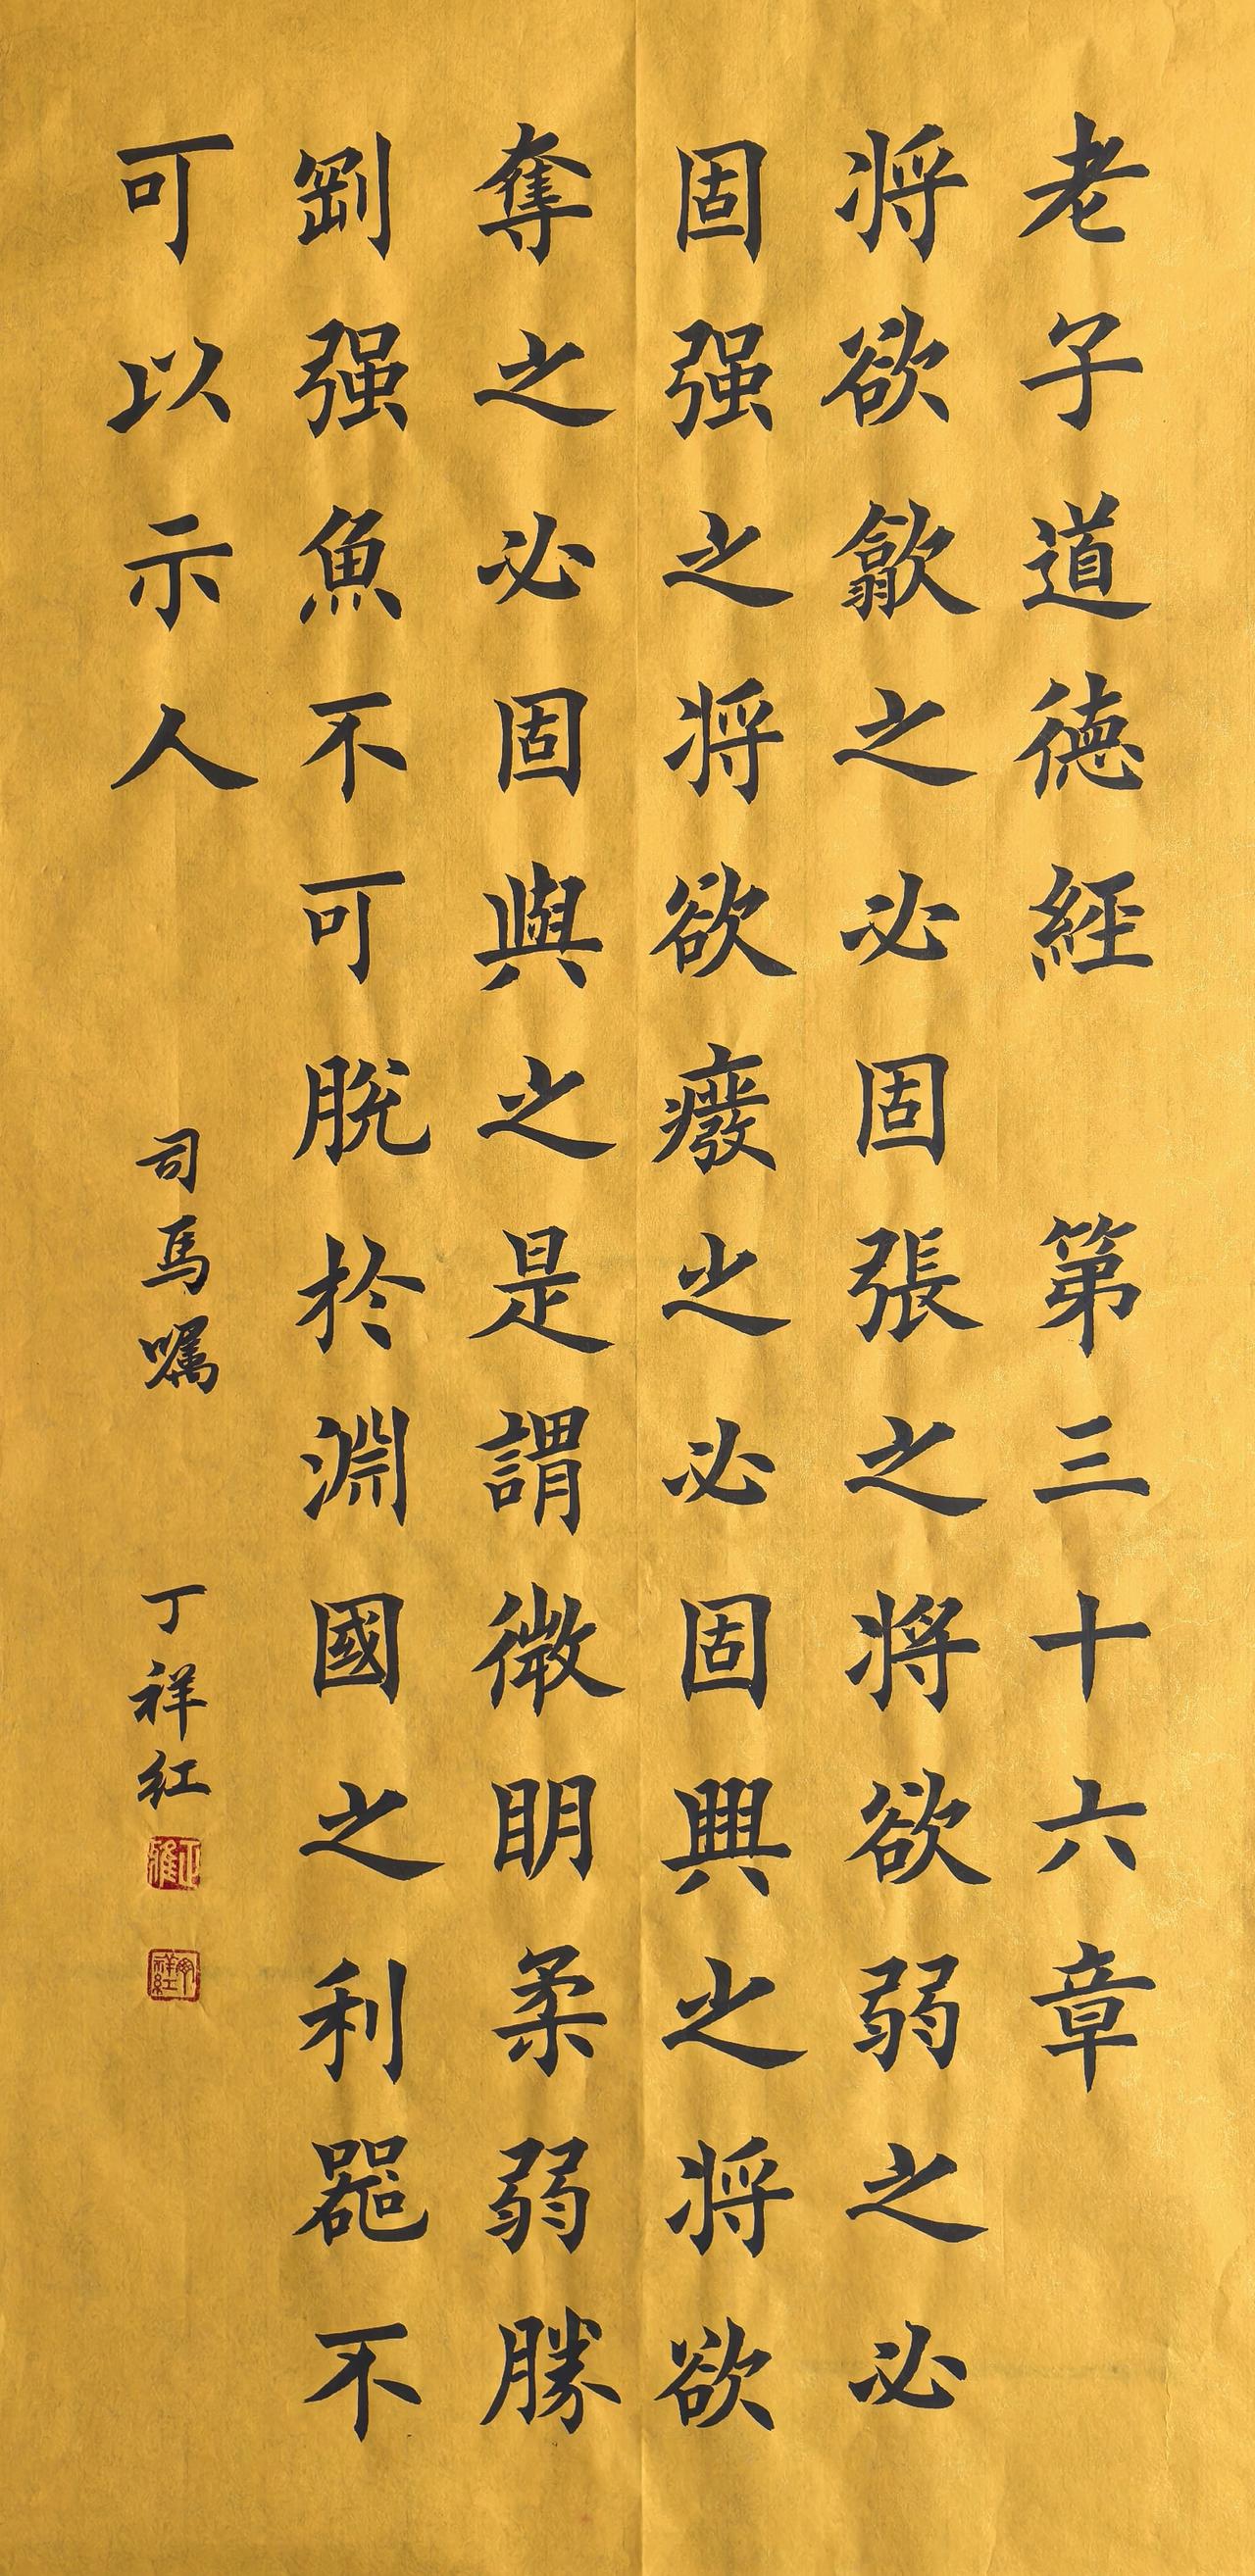 老子道德經 第三十六章
将欲歙之必固張之将欲弱之必
固强之将欲癈之必固興之将欲
奪之必固與之是謂微明柔弱勝
剛强魚不可脫於淵國之利器不
可以示人
司馬嘱 丁祥红